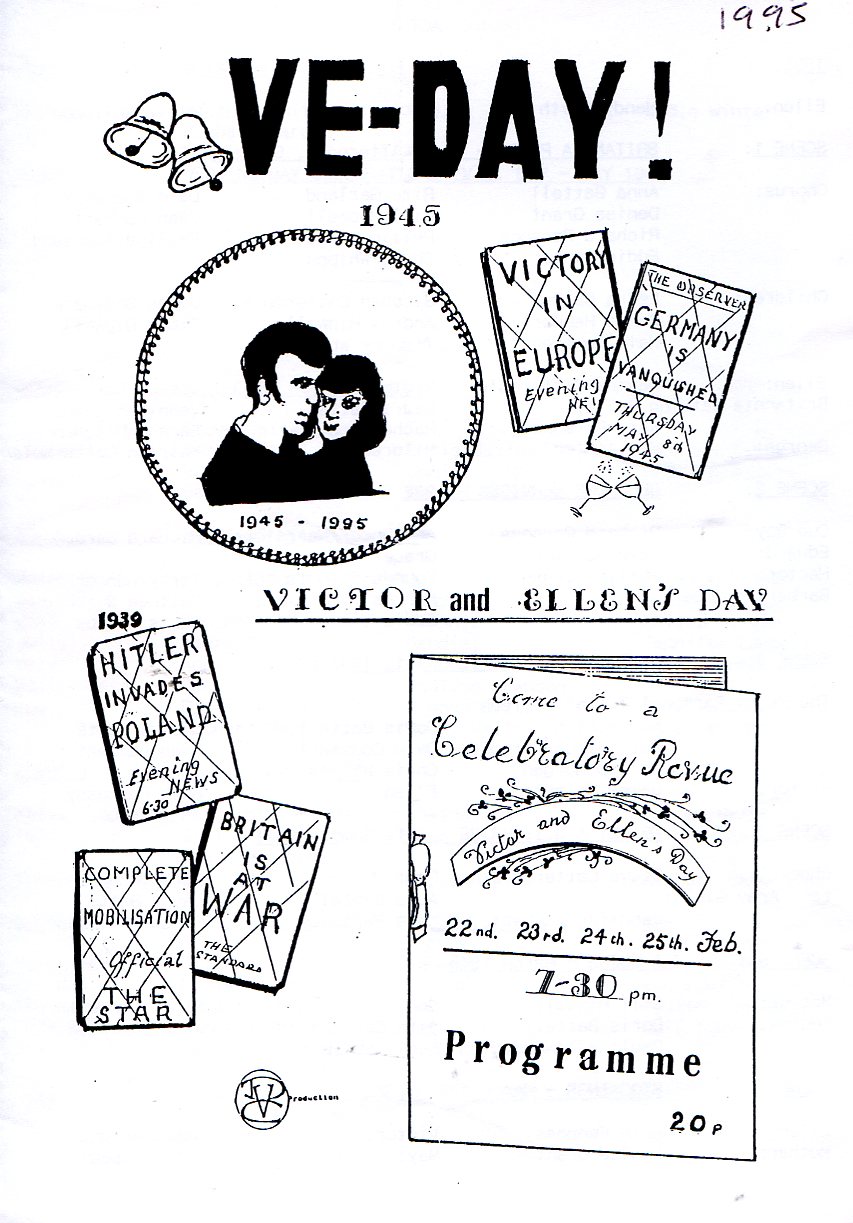 1995
VE-DAY!
1945
VICTORY
IN
EUROPE
Evening
THE OBSERVER
GERMANY
IS
VANQUISHED
THURSDAY
MAY 8th
1945
1945 - 1995
VICTOR and ELLEN'S DAY
1939
HITLER
INVADES
POLAND
Evening
NEWS
6.30
BRITAIN
IS
AT
WAR
THE
STANDARD
COMPLETE
MOBILISATION
Official
THE
STAR
Come to a
Celebratory Revue
Victor and Ellen's Day
22nd. 23rd. 24th. 25th. Feb.
7-30 pm.
Programme
20p